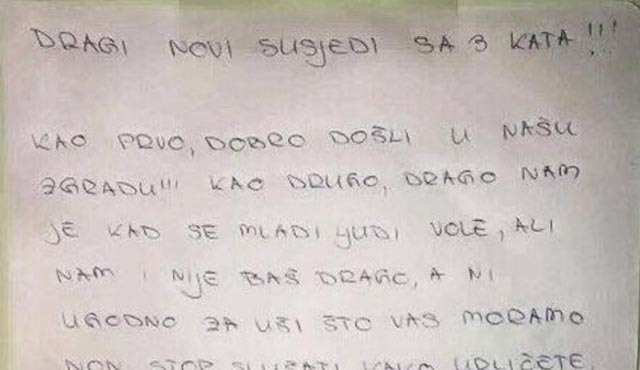 DRAGI NOVI SUSJEDI SA 3 KATA!!!
KAO PRVO, DOBRO DOŠLI U NAŠU
ZGRADU!!! KAO DRUGO, DRAGO NAM
JE KAD SE MLADI LJUDI VOLE, ALI
NAM I NIJE BAŠ DRAGO, A NI
UGODNO ZA UŠI ŠTO VAS MORAMO
NON STOP SLUŠATI KAKO